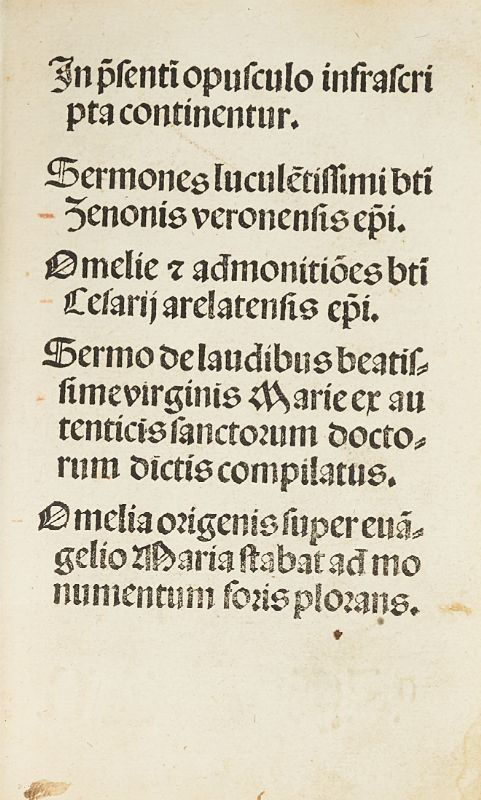 In p̄senti opusculo infrascri
pta continentur.
Sermones luculētissimi bti̅
Zenonis veronensis ep̄i.
Omelie ⁊ admonitiōes bti̅
Cesarij arelatensis ep̄i.
Sermo de laudibus beatis⸗
sime virginis Marie ex au
tenticis sanctorum docto⸗
rum dictis compilatus.
Omelia origenis super euā⸗
gelio Maria stabat ad mo
numentum foris plorans.